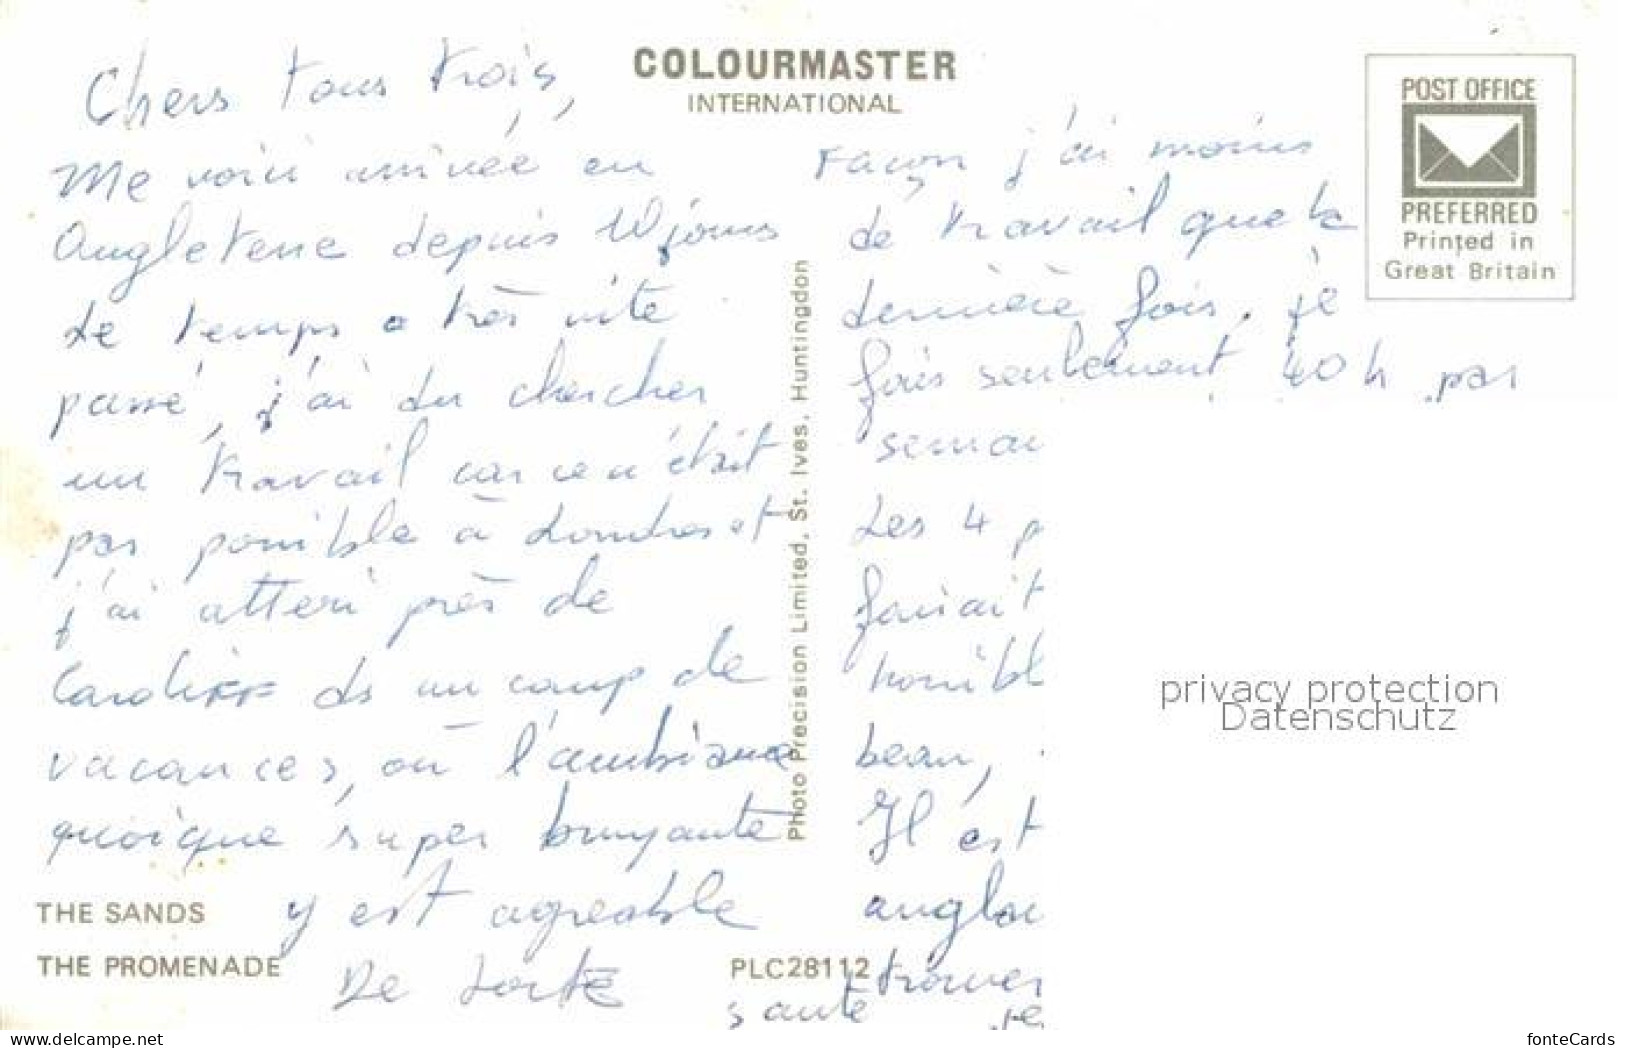 COLOURMASTER
INTERNATIONAL
Chers tous trois,
Me voici arrivée en
Angleterre depuis 10 jours
Le temps a très vite
passé, j'ai du chercher
un travail car ce n'était
pas possible à Londres et
j'ai atterri près de
Cardiff ds un camp de
vacances, où l'ambiance
quoique super bruyante
y est agréable
De toute
THE SANDS
THE PROMENADE
PLC28112
Photo Precision Limited, St. Ives, Huntingdon
Façon j'ai moins
de travail que la
dernière fois, je
fais seulement 40 h par
semai
Les 4 p
faisait
horribl
beau,
Il est
anglai
trouver
santé re
POST OFFICE
PREFERRED
Printed in
Great Britain
privacy protection
Datenschutz
www.delcampe.net
fonteCards